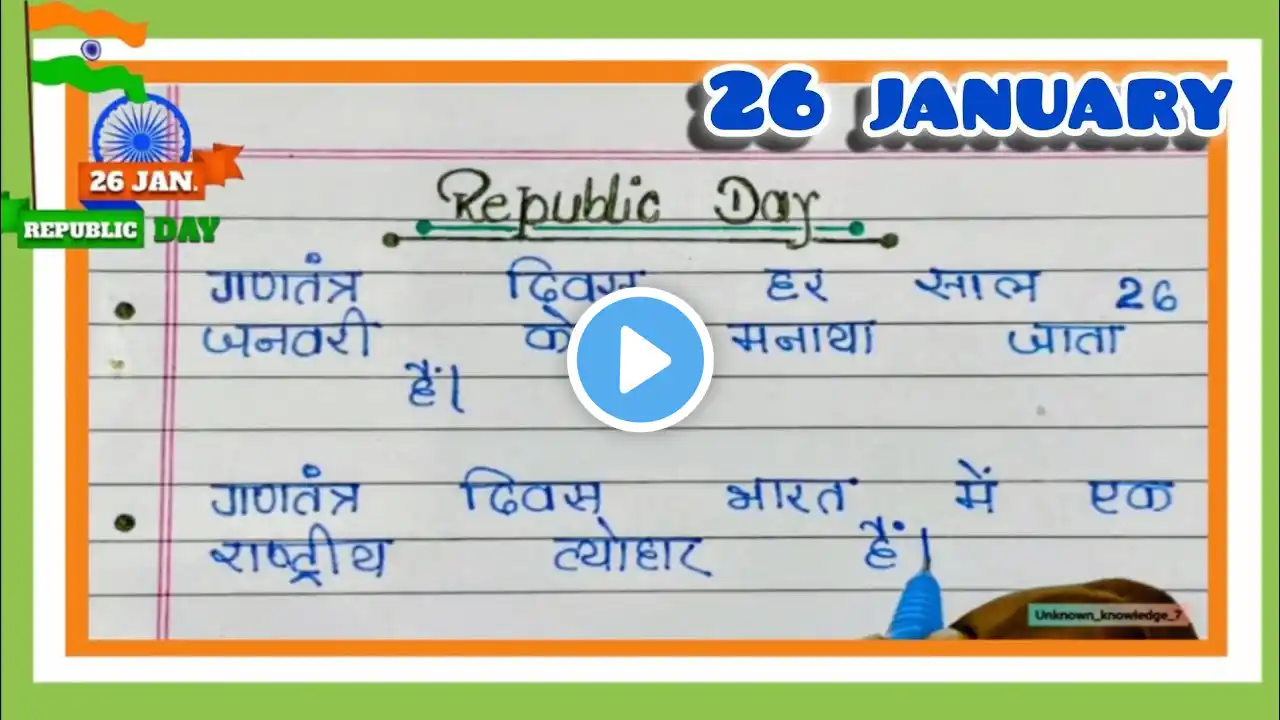 26 JANUARY
26 JAN.
REPUBLIC DAY
Republic Day
गणतंत्र दिवस हर साल 26
जनवरी को मनाया जाता
हैं।
गणतंत्र दिवस भारत में एक
राष्ट्रीय त्योहार हैं।
Unknown_knowledge_7